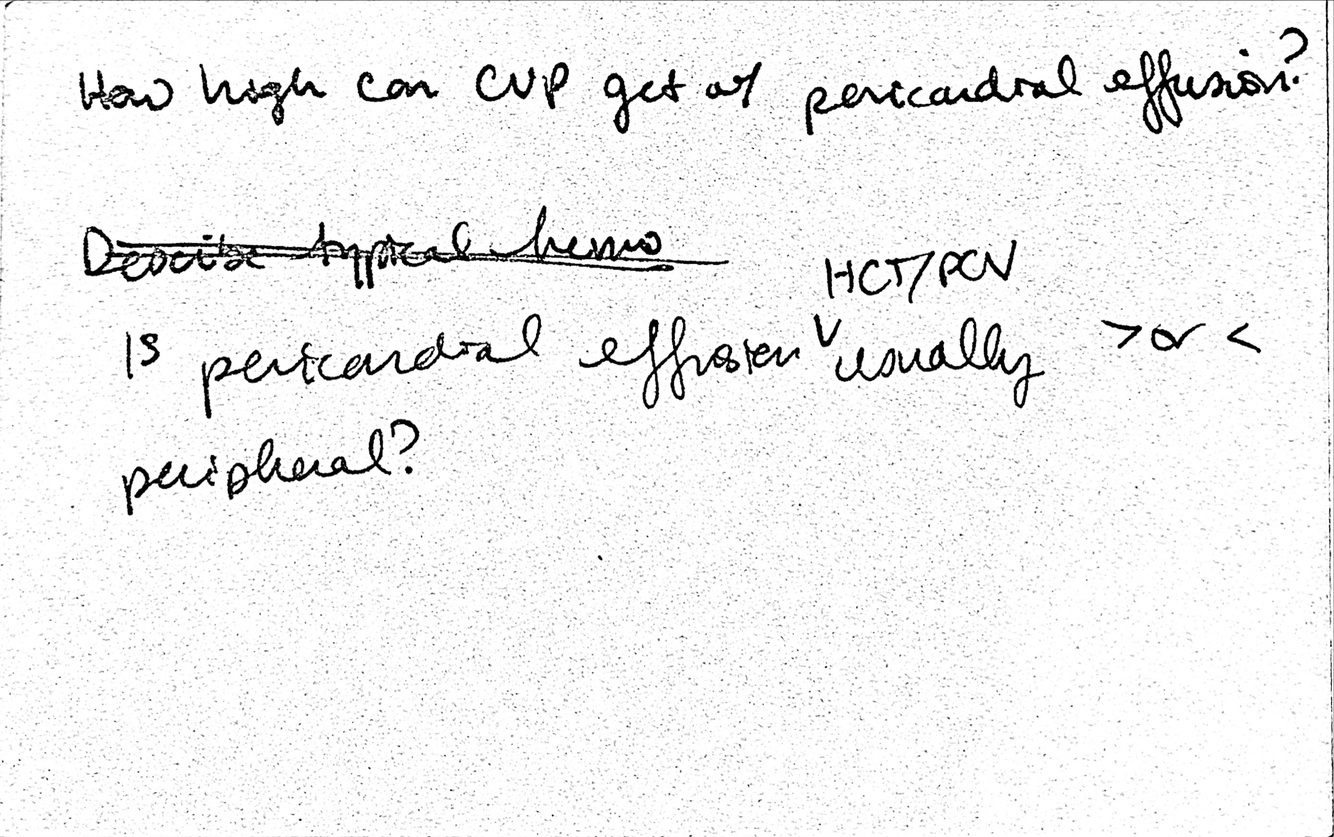 How high can CVP get w/ pericardial effusion?
Describe typical hemo
HCT/PCV
Is pericardial effusion usually > or <
peripheral?